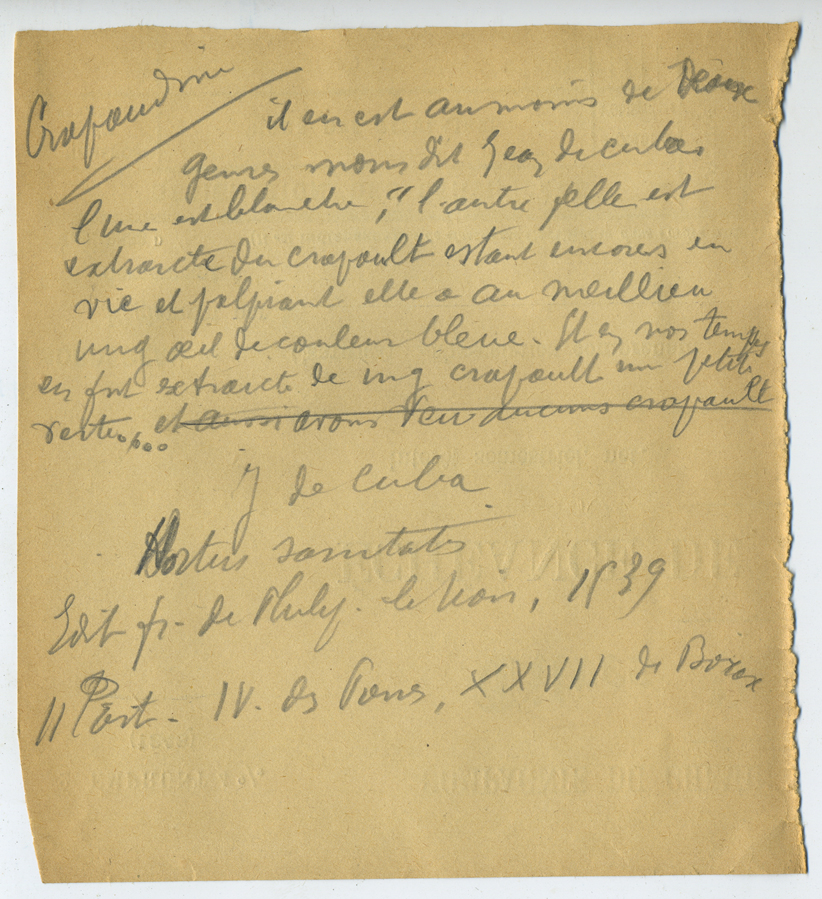 Crapaudine
il en est au moins de deux
genres nous dit Jean de cuba
l'une est blanche, "l'autre elle est
extraicte du crapault estant encores en
vie et palpitant elle a au meillieu
ung œil de couleur bleue. Et en nos temps
en fut extraicte de ung crapault un petit
verte.... et aussi avons veu aucuns crapault
J de Cuba
Hortus sanitatis
Edit fr. de Philip. le Noir, 1539
II Part. IV. des Pierres, XXVII de Borax